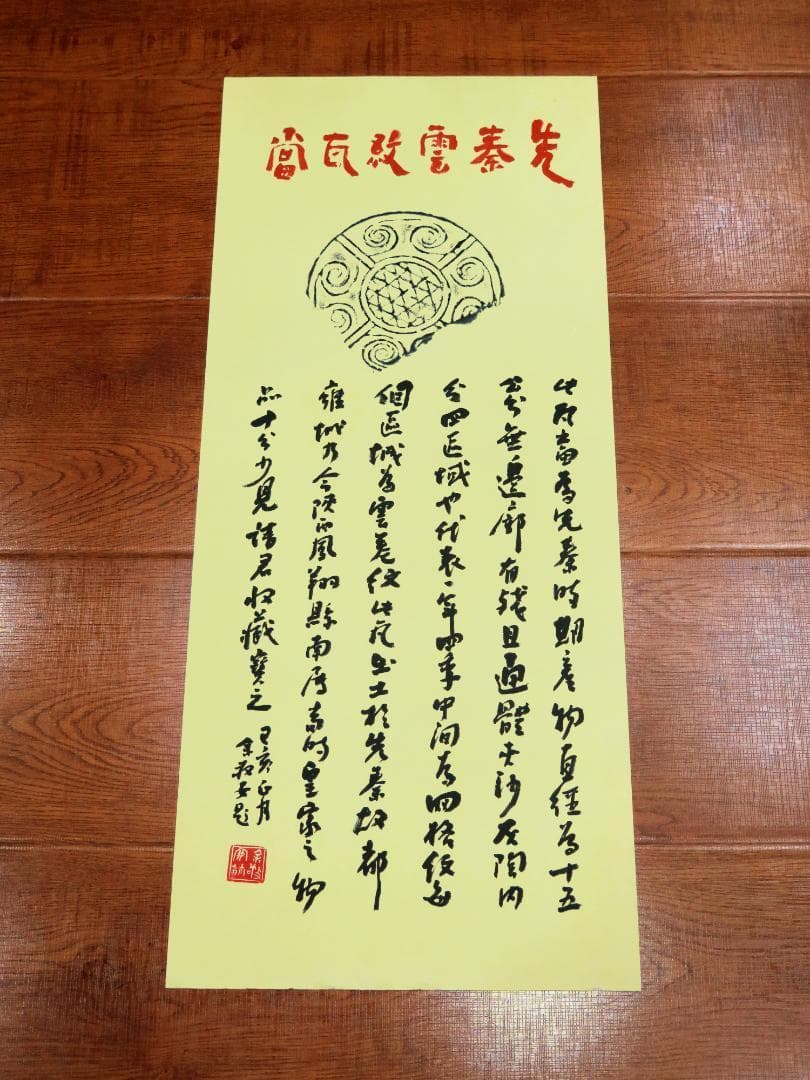 先秦雲紋瓦當
此瓦當為先秦時期產物直徑為十五
公分無邊廓有殘且通體夾沙灰陶內
分四區域也代表一年四季中间為网格纹每
個區域為雲卷纹此瓦出土於先秦故都
雍城乃今陝西鳳翔縣南屬古時皇家之物
品十分少見請君收藏寶之
己亥正月
余敖安題